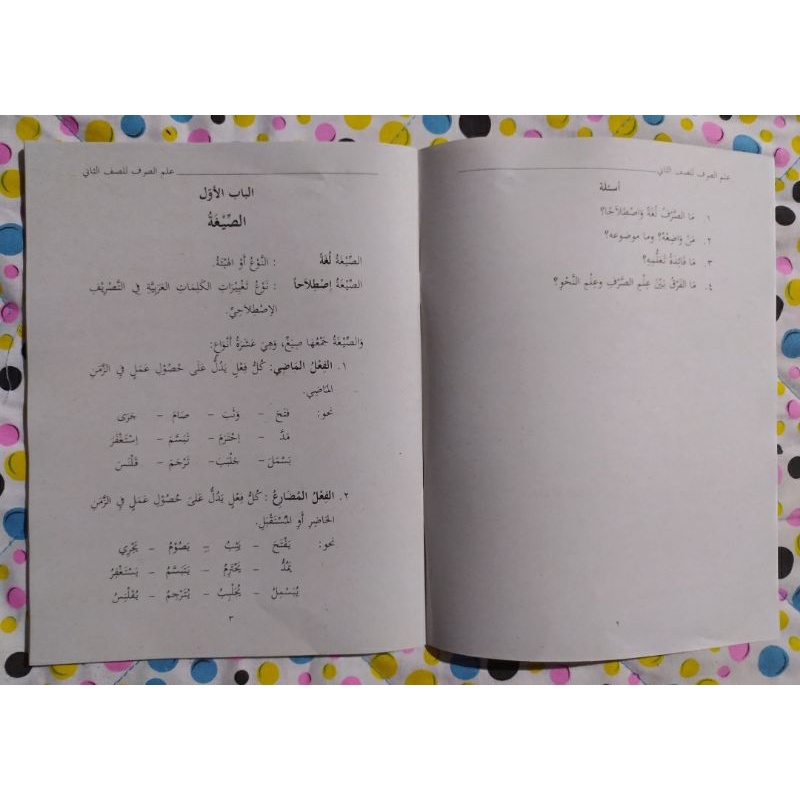 علم الصرف للصف الثاني
أسئلة
١. مَا الصَّرْفُ لُغَةً وَاصْطِلَاحًا؟
٢. مَنْ وَاضِعُهُ؟ وما موضوعه؟
٣. مَا فَائِدَةُ تَعَلُّمِهِ؟
٤. مَا الفَرْقُ بَيْنَ عِلْمِ الصَّرْفِ وعِلْمِ النَّحْوِ؟
٢
علم الصرف للصف الثاني
الباب الأوّل
الصِّيْغَةُ
الصِّيْغَةُ لُغَةً : النَّوْعُ أَوْ الهَيْئَةُ.
الصِّيْغَةُ إصْطِلَاحاً : نَوْعُ تَغْيِيْرَاتِ الكَلِمَاتِ العَرَبِيَّةِ فِي التَّصْرِيْفِ
الإصْطِلَاحِيِّ.
وَالصِّيْغَةُ جَمْعُهَا صِيَغٌ، وَهِيَ عَشَرَةُ أَنْوَاعٍ:
١. الفِعْلُ المَاضِي: كُلُّ فِعْلٍ يَدُلُّ عَلَى حُصُوْلِ عَمَلٍ فِي الزَّمَنِ
المَاضِي.
نحو: فَتَحَ – وَثَبَ – صَامَ – جَرَى
مَدَّ – اِحْتَرَمَ – تَبَسَّمَ – اِسْتَغْفَرَ
بَسْمَلَ – جَلْبَبَ – تَرْجَمَ – قَلْنَسَ
٢. الفِعْلُ المُضَارِعُ : كُلُّ فِعْلٍ يَدُلُّ عَلَى حُصُوْلِ عَمَلٍ فِي الزَّمَنِ
الحَاضِرِ أَوِ المُسْتَقْبَلِ.
نحو: يَفْتَحُ – يَثِبُ – يَصُوْمُ – يَجْرِي
يَمُدُّ – يَحْتَرِمُ – يَتَبَسَّمُ – يَسْتَغْفِرُ
يُبَسْمِلُ – يُجَلْبِبُ – يُتَرْجِمُ – يُقَلْنِسُ
٣